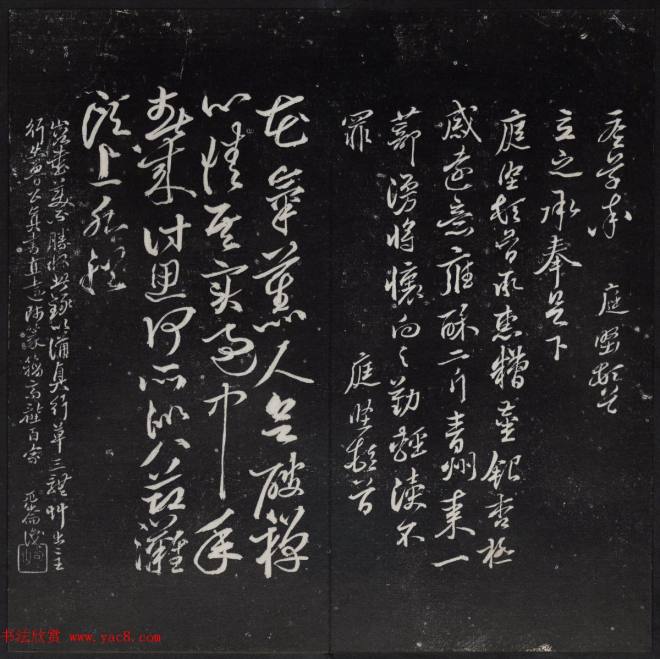 庭堅頓首
立之承奉足下
庭堅頓首承惠糟薑銀杏極
感遠意雍酥二斤青州棗一
蔀漫將懷向之勤輕瀆不
罪 庭堅頓首
花氣薰人欲破禪
心情其實過中年
春來詩思何所似八節灘
頭上水船
勝收茲錄以備真行草三體
书法欣赏 www.yac8.com